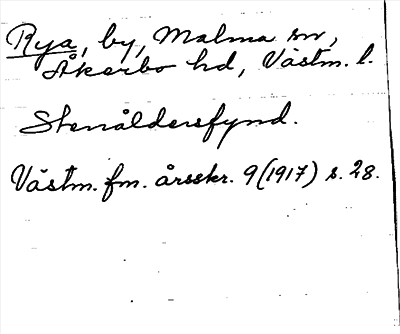 Rya, by, Malma sn,
Åkerbo hd, Västm. l.
Stenåldersfynd.
Västm. fm. årsskr. 9 (1917) s. 28.